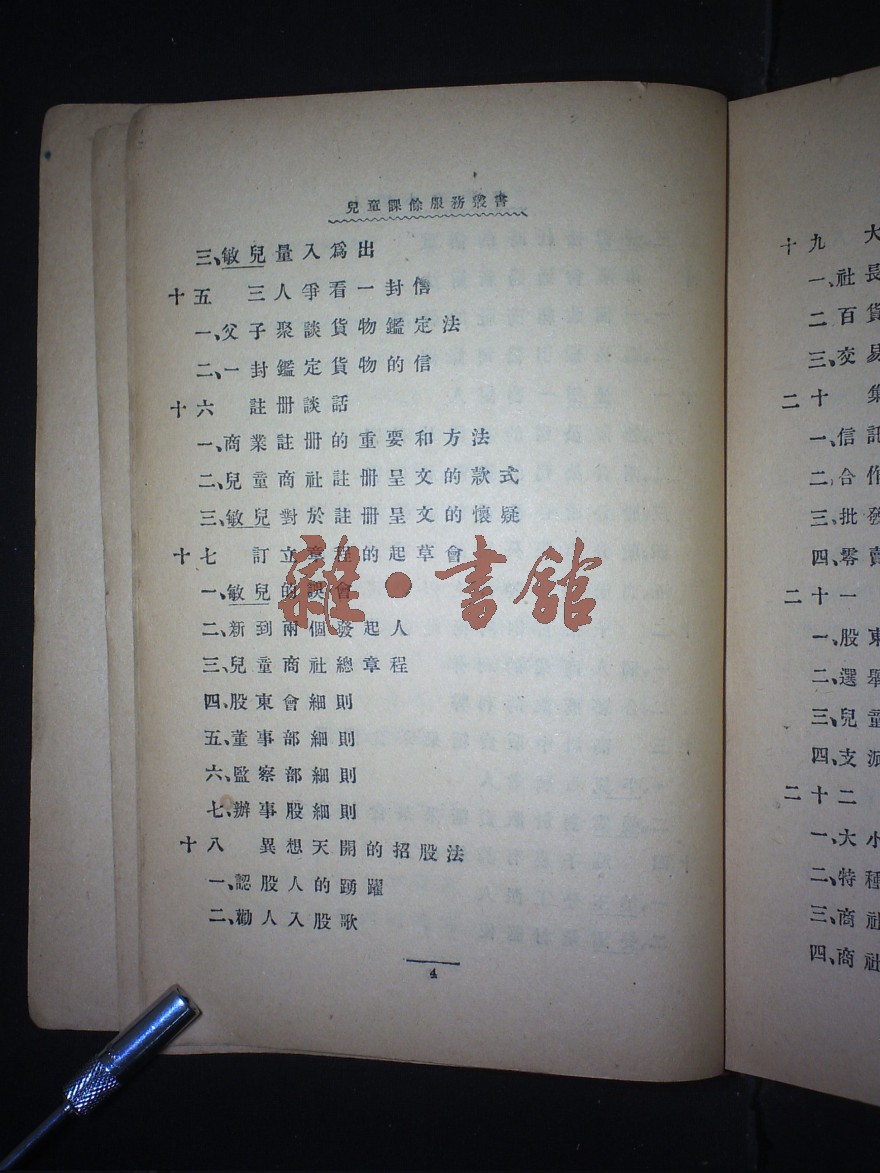 兒童課餘服務叢書
三、敏兒量入爲出
十五 三人爭看一封信
一、父子聚談貨物鑑定法
二、一封鑑定貨物的信
十六 註册談話
一、商業註册的重要和方法
二、兒童商社註册呈文的款式
三、敏兒對於註册呈文的懷疑
十七 訂立章程的起草會
一、敏兒的誤會
二、新到兩個發起人
三、兒童商社總章程
四、股東會細則
五、董事部細則
六、監察部細則
七、辦事股細則
十八 異想天開的招股法
一、認股人的踴躍
二、勸人入股歌
4
雜·書館
十九 大
一、社長
二 百貨
三、交易
二十 集
一、信託
二、合作
三、批發
四、零賣
二十一
一、股東
二、選舉
三、兒童
四、支派
二十二
一、大小
二、特種
三、商社
四、商社